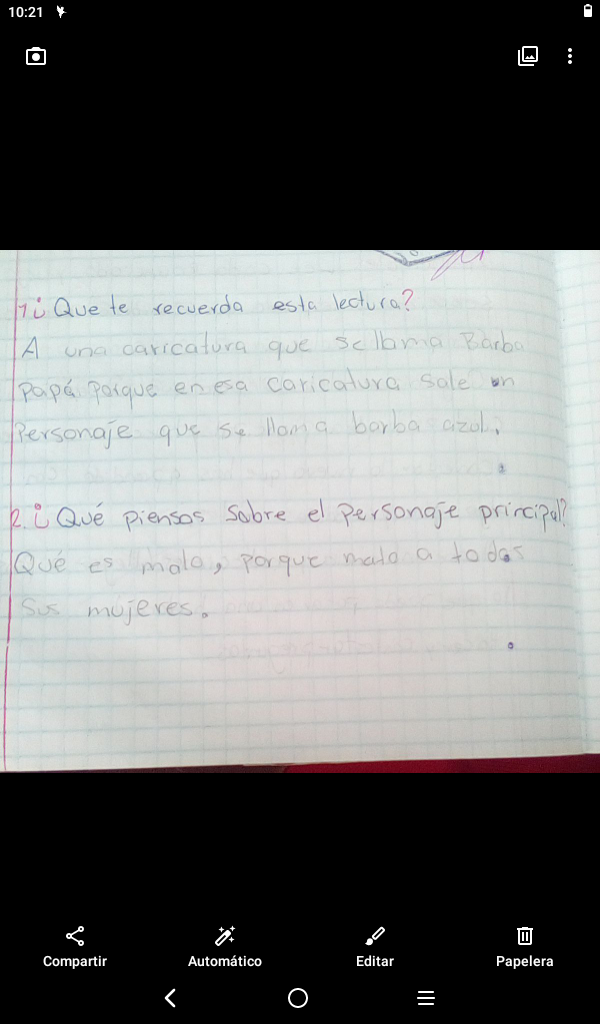 10:21
1¿Que te recuerda esta lectura?
A una caricatura que se llama Barba
Papá porque en esa caricatura sale un
Personaje que se llama barba azul.
2.¿Qué piensas sobre el personaje principal?
Qué es malo, porque mato a todas
sus mujeres.
Compartir
Automático
Editar
Papelera